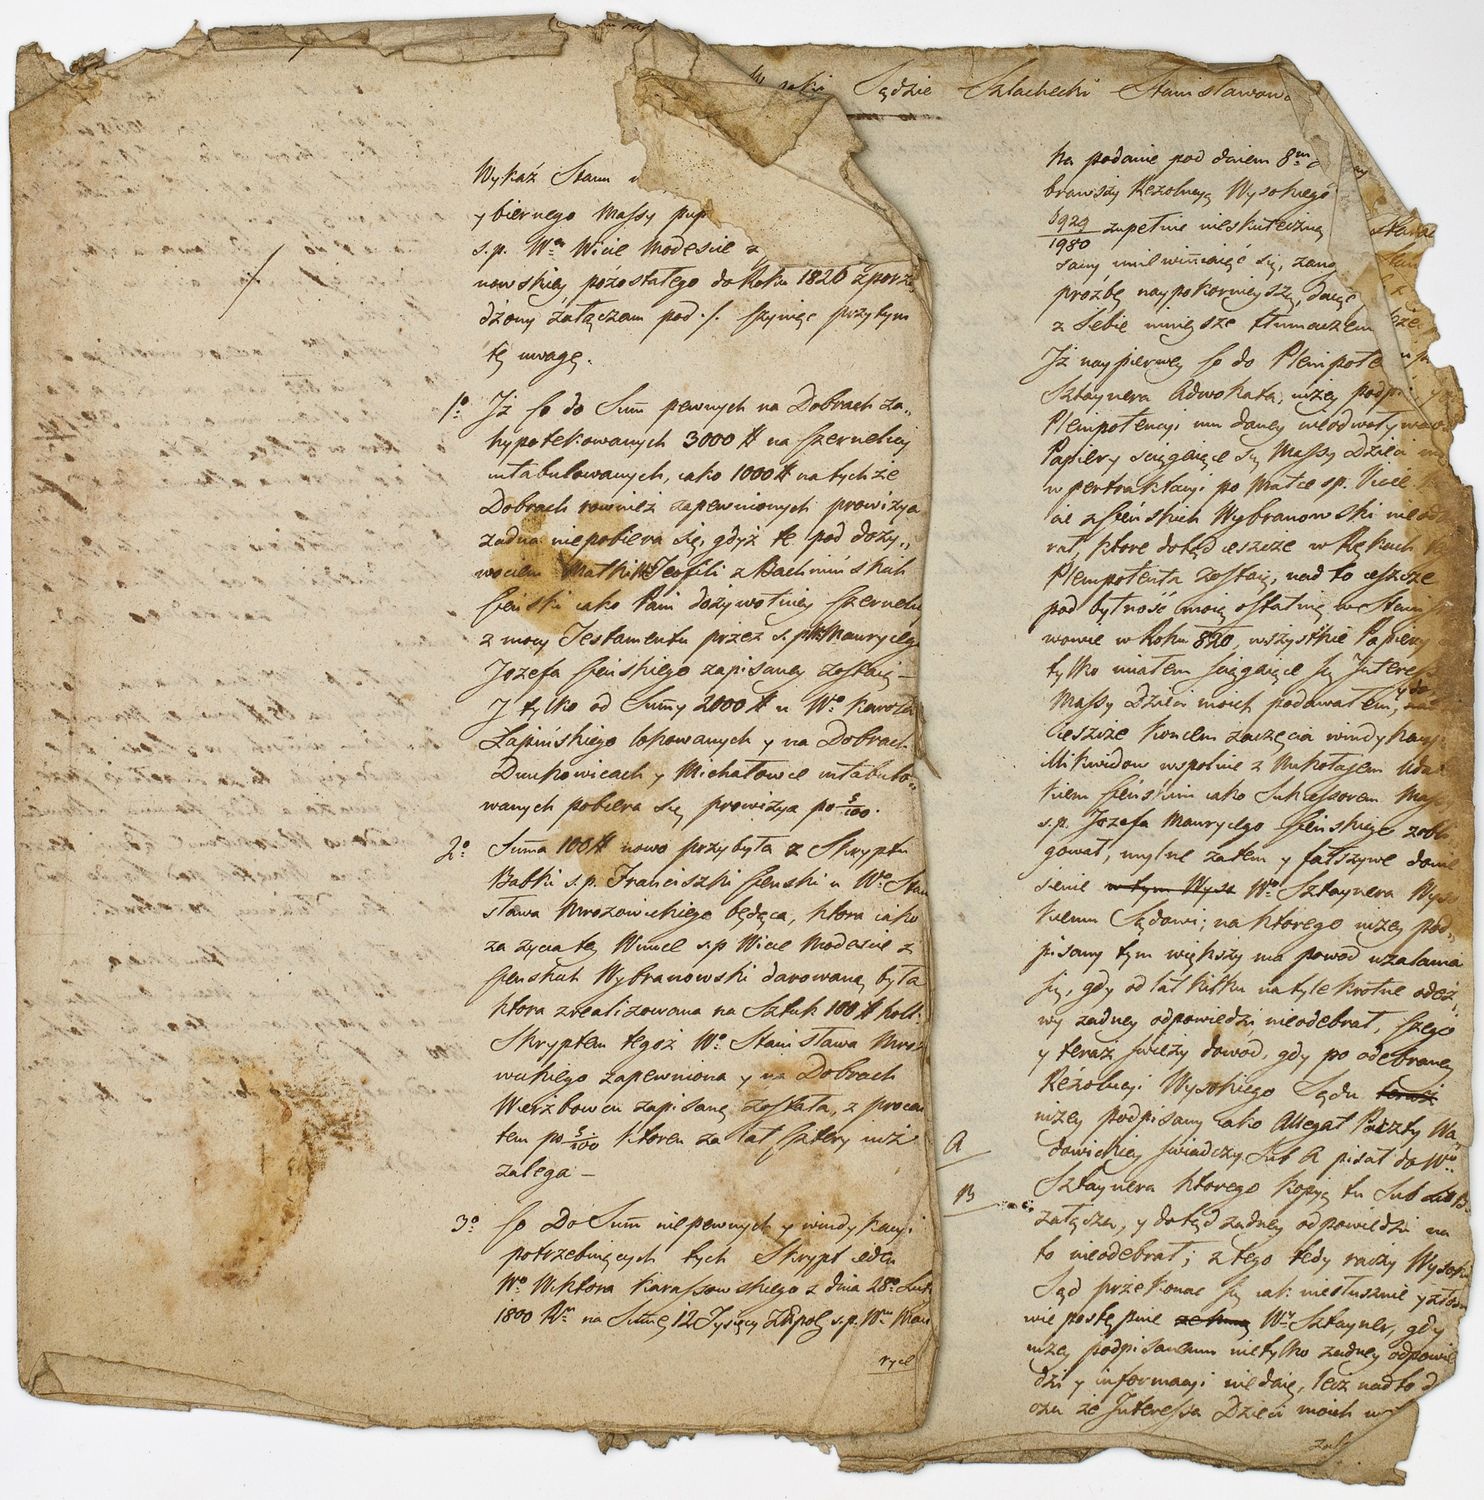 Wykaz Stanu
y biernego Massy pup
s.p. Wey Wicie Modescie z
nowskiey pozostałego do Roku 1820 zporzą
dzony załączam pod ./. czyniąc przytym
tę uwagę.
1o Iż co do Sum pewnych na Dobrach za„
hypotekowanych 3000 # na Czernelicy
intabulowanych, iako 1000 # na tych że
Dobrach rownież zapewnionych prowizya
żadna niepobiera się, gdyż te pod doży„
wociem Matki Teofili z Bachmińskich
Cieński iako Pani dożywotniey Czernelicy
z mocy Testamentu przez s.p. Maurycego
Jozefa Cieńskiego zapisaney zostaią —
Y tylko od Sumy 2000 # u Wo Karola
Łapińskiego lokowanych y na Dobrach
Dmukowicach y Michałowce intabulo„
wanych pobiera się prowizya po 5/100.
2o Suma 100 # nowo przybyła z Skryptu
Babki s.p. Franciszki Cienski u Wo Stani
sława Mrozowickiego będąca, ktora iako
za życia tey Wnuce s.p. Wicie Modescie z
Cienskich Wybranowski darowaną była
ktora zrealizowana na Sztuk 100 # holl.
Skryptem tegoż Wo Stanisława Mrozo
wickiego zapewniona y na Dobrach
Wierzbowcu zapisaną została, z procen
tem po 5/100 ktoren za lat cztery iuż
zalega —
3o Co Do Sum niepewnych y windykacyi
potrzebuiących tych Skrypt ieden
Wo Wiktora Karassowskiego z dnia 28o Lut
1800 Rm na Sumę 12 Tysięcy Złpol s.p. Wu Mau
ryce
Sądzie Szlachecki Stanisławow
Na podanie pod dniem 8m
brawszy Rezolucyą Wysokiego
6929/1980 zupełnie nieskuteczną
samy umilewiniaiąc się, zano
prozbę naypokornieyszą, daiąc
z Siebie mnieysze tłumaczeni
Iż naypierwey co do Plenipote
Sztaynera Adwokata, niżey podpi
Plenipotencyi mu daney nieodwoływa
Papiery sciągaiące się Massy Dzieci
w pertraktacyi po Matce s.p. Vicie
cie z Cieńskich Wybranowski nieode
rał, ktore dotąd ieszcze w Rękach
Plenipotenta zostaią, nad to ieszcze
pod bytność moią ostatnią w Stanis
wowie w Roku 820, wszystkie Papiery
tylko miałem sciągaiące się Interess
Massy Dzieci moich podawałem,
ieszcze koncem zaczęcia windykacyi
illikwidow wspolnie z Mikołajem Uda
kiem Cieńskim iako Sukcessorem Mass
s.p. Jozefa Maurycego Cieńskiego zobli
gował, mylne zatem y fałszywe donie
sienie w tym Wyso Wo Sztaynera Wyso
kiemu Sądowi; na ktorego niżey pod„
pisany tym większy ma powod użalania
się, gdy od lat kilku natylekrotne odez
wy żadney odpowiedzi nieodebrał, czego
y teraz swieży dowod, gdy po odebraney
Rezolucyi Wysokiego Sądu teraz
niżey podpisany iako Allegat Poczty Wa
A dowickiey swiadczy Sub A pisał do Wo
B Sztaynera ktorego kopyą tu Sub B
załącza, y dotąd żadney odpowiedzi na
to nieodebrał; z tego tedy raczy Wysoki
Sąd przekonac się iak niesłusznie y złośli
wie postępuie ze mną Wy Sztayner, gdy
niżey podpisanemu nietylko żadney odpowie
dzi y informacyi niedaie, lecz nadto d
oza że Interessa Dzieci moich w
zał